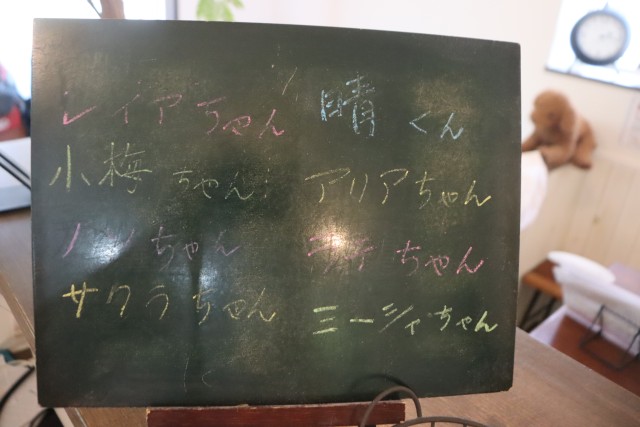 レイアちゃん
小梅ちゃん
ちゃん
サクラちゃん
晴くん
アリアちゃん
ちゃん
ミーシャちゃん